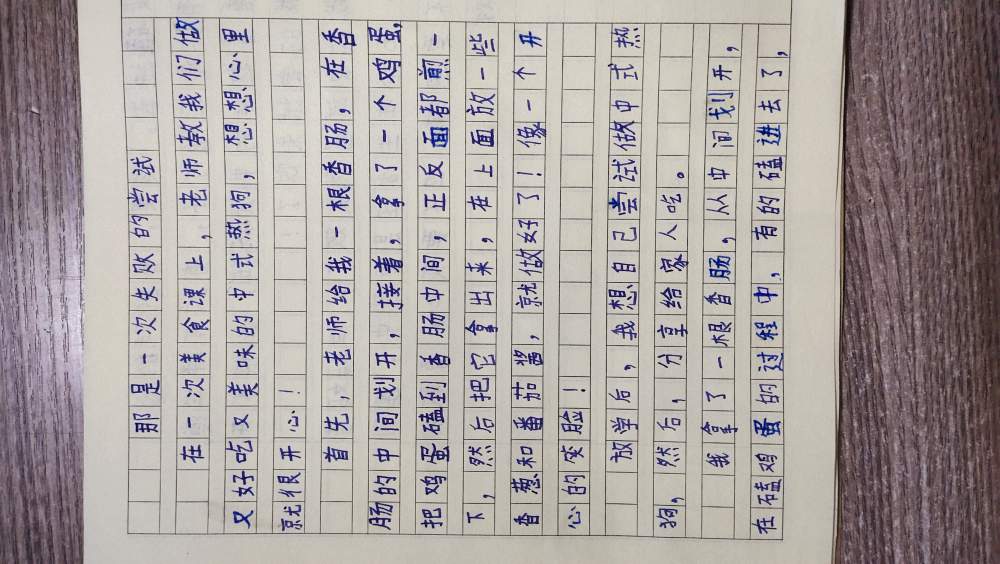 那是一次失败的尝试
在一次美食课上，老师教我们做
又好吃又美味的中式热狗，想想心里
就很开心！
首先，老师给我一根香肠，在香
肠的中间划开，接着，拿了一个鸡蛋，
把鸡蛋磕到香肠中间，正反面都煎一
下，然后把它拿出来，在上面放一些
香葱和番茄酱，就做好了！像一个开
心的笑脸！
放学后，我想自己尝试做中式热
狗，然后，分享给家人吃。
我拿了一根香肠，从中间划开，
在磕鸡蛋的过程中，有的磕进去了，